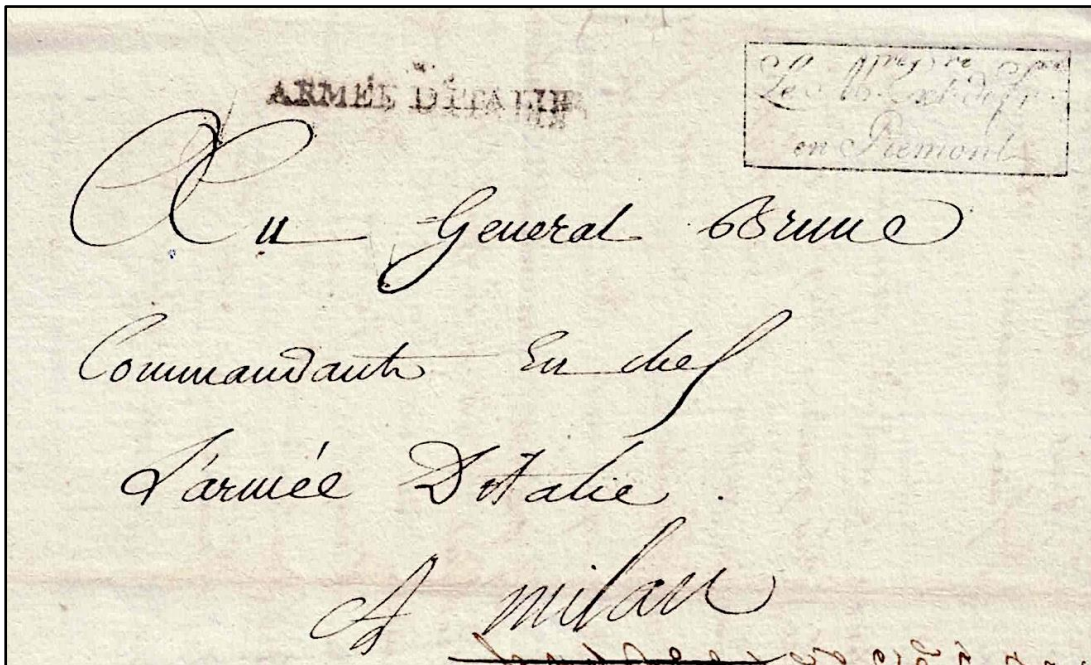 ARMÉE D'ITALIE
Le M Ext.
en Piemont
Au General Brune
Commandant En chef
L'armée D'Italie.
A milan